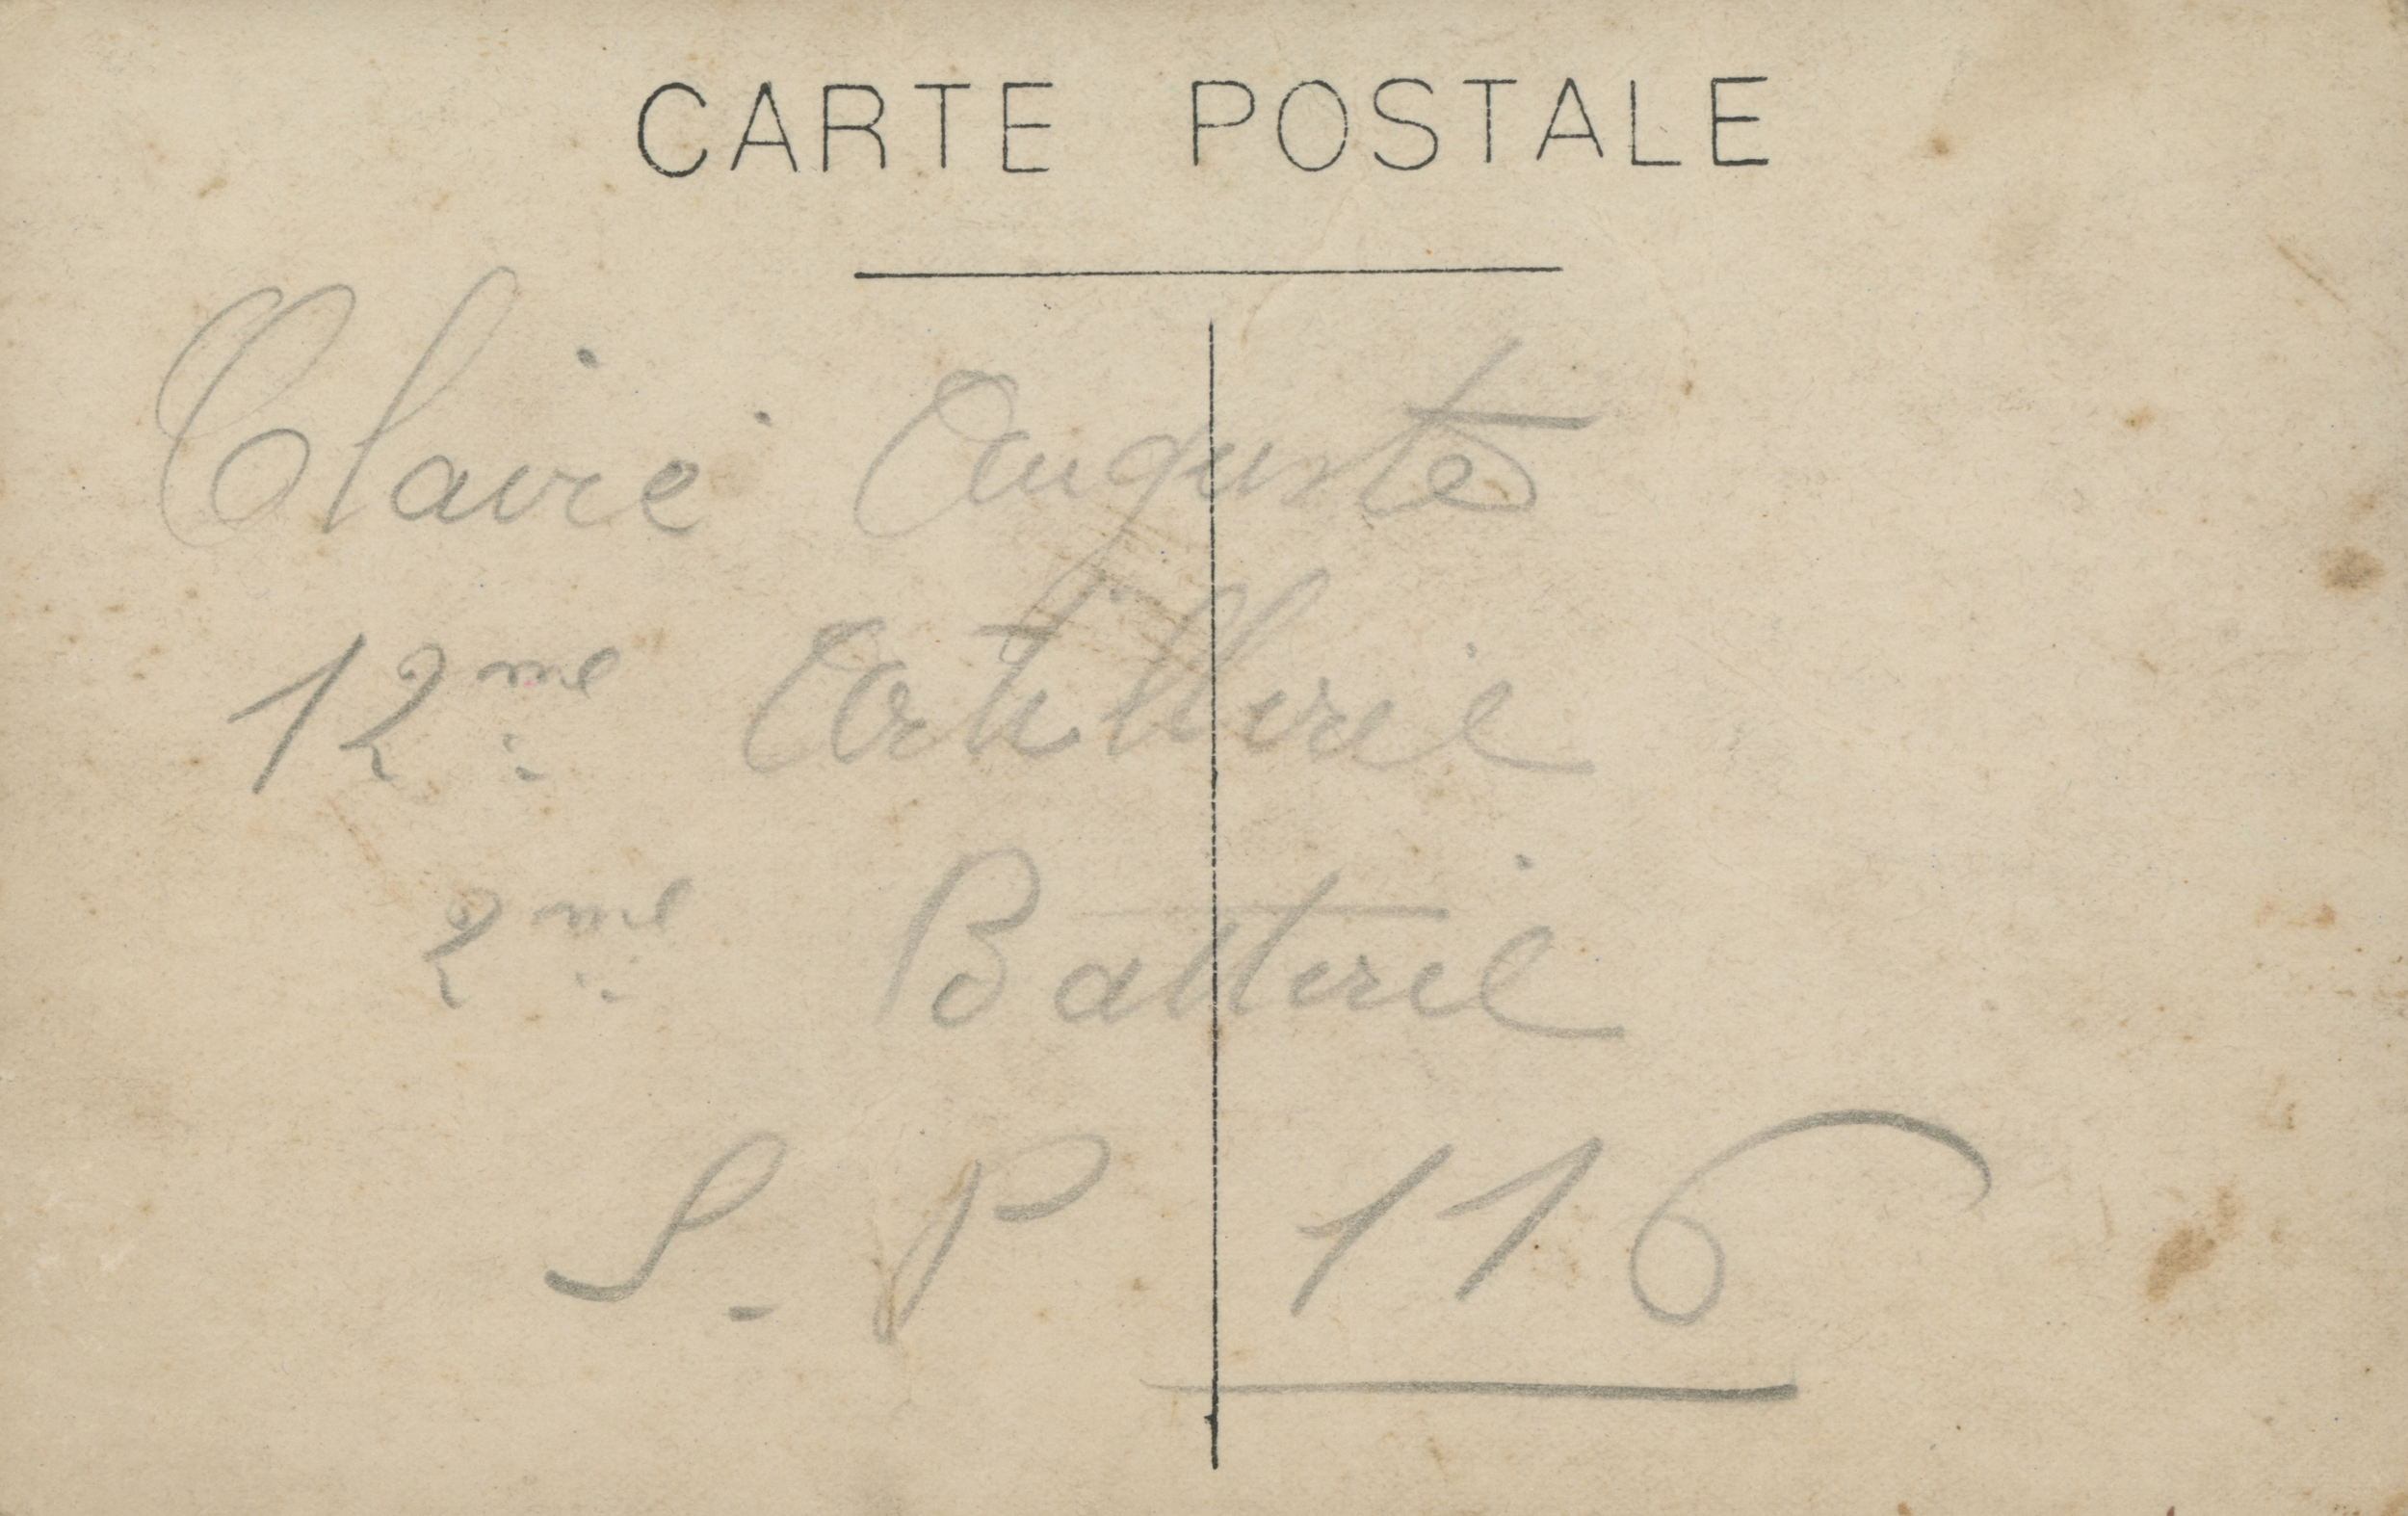 CARTE POSTALE
Claire Auguste
12me Artillerie
2me Batterie
S. P 116